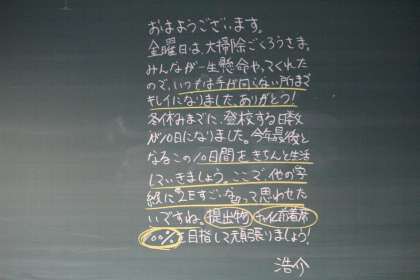 おはようございます。
金曜日は、大掃除ごくろうさま。
みんなが一生懸命やってくれた
ので、いつもは手が回らない所まで
キレイになりました。ありがとう!
冬休みまでに、登校する日数
が10日になりました。今年最後と
なるこの10日間をきちんと生活
していきましょう。ここで他の学
級に2Eすごいなって思わせた
いですね。提出物 チャイム前着席
100%を目指して頑張りましょう!
浩介